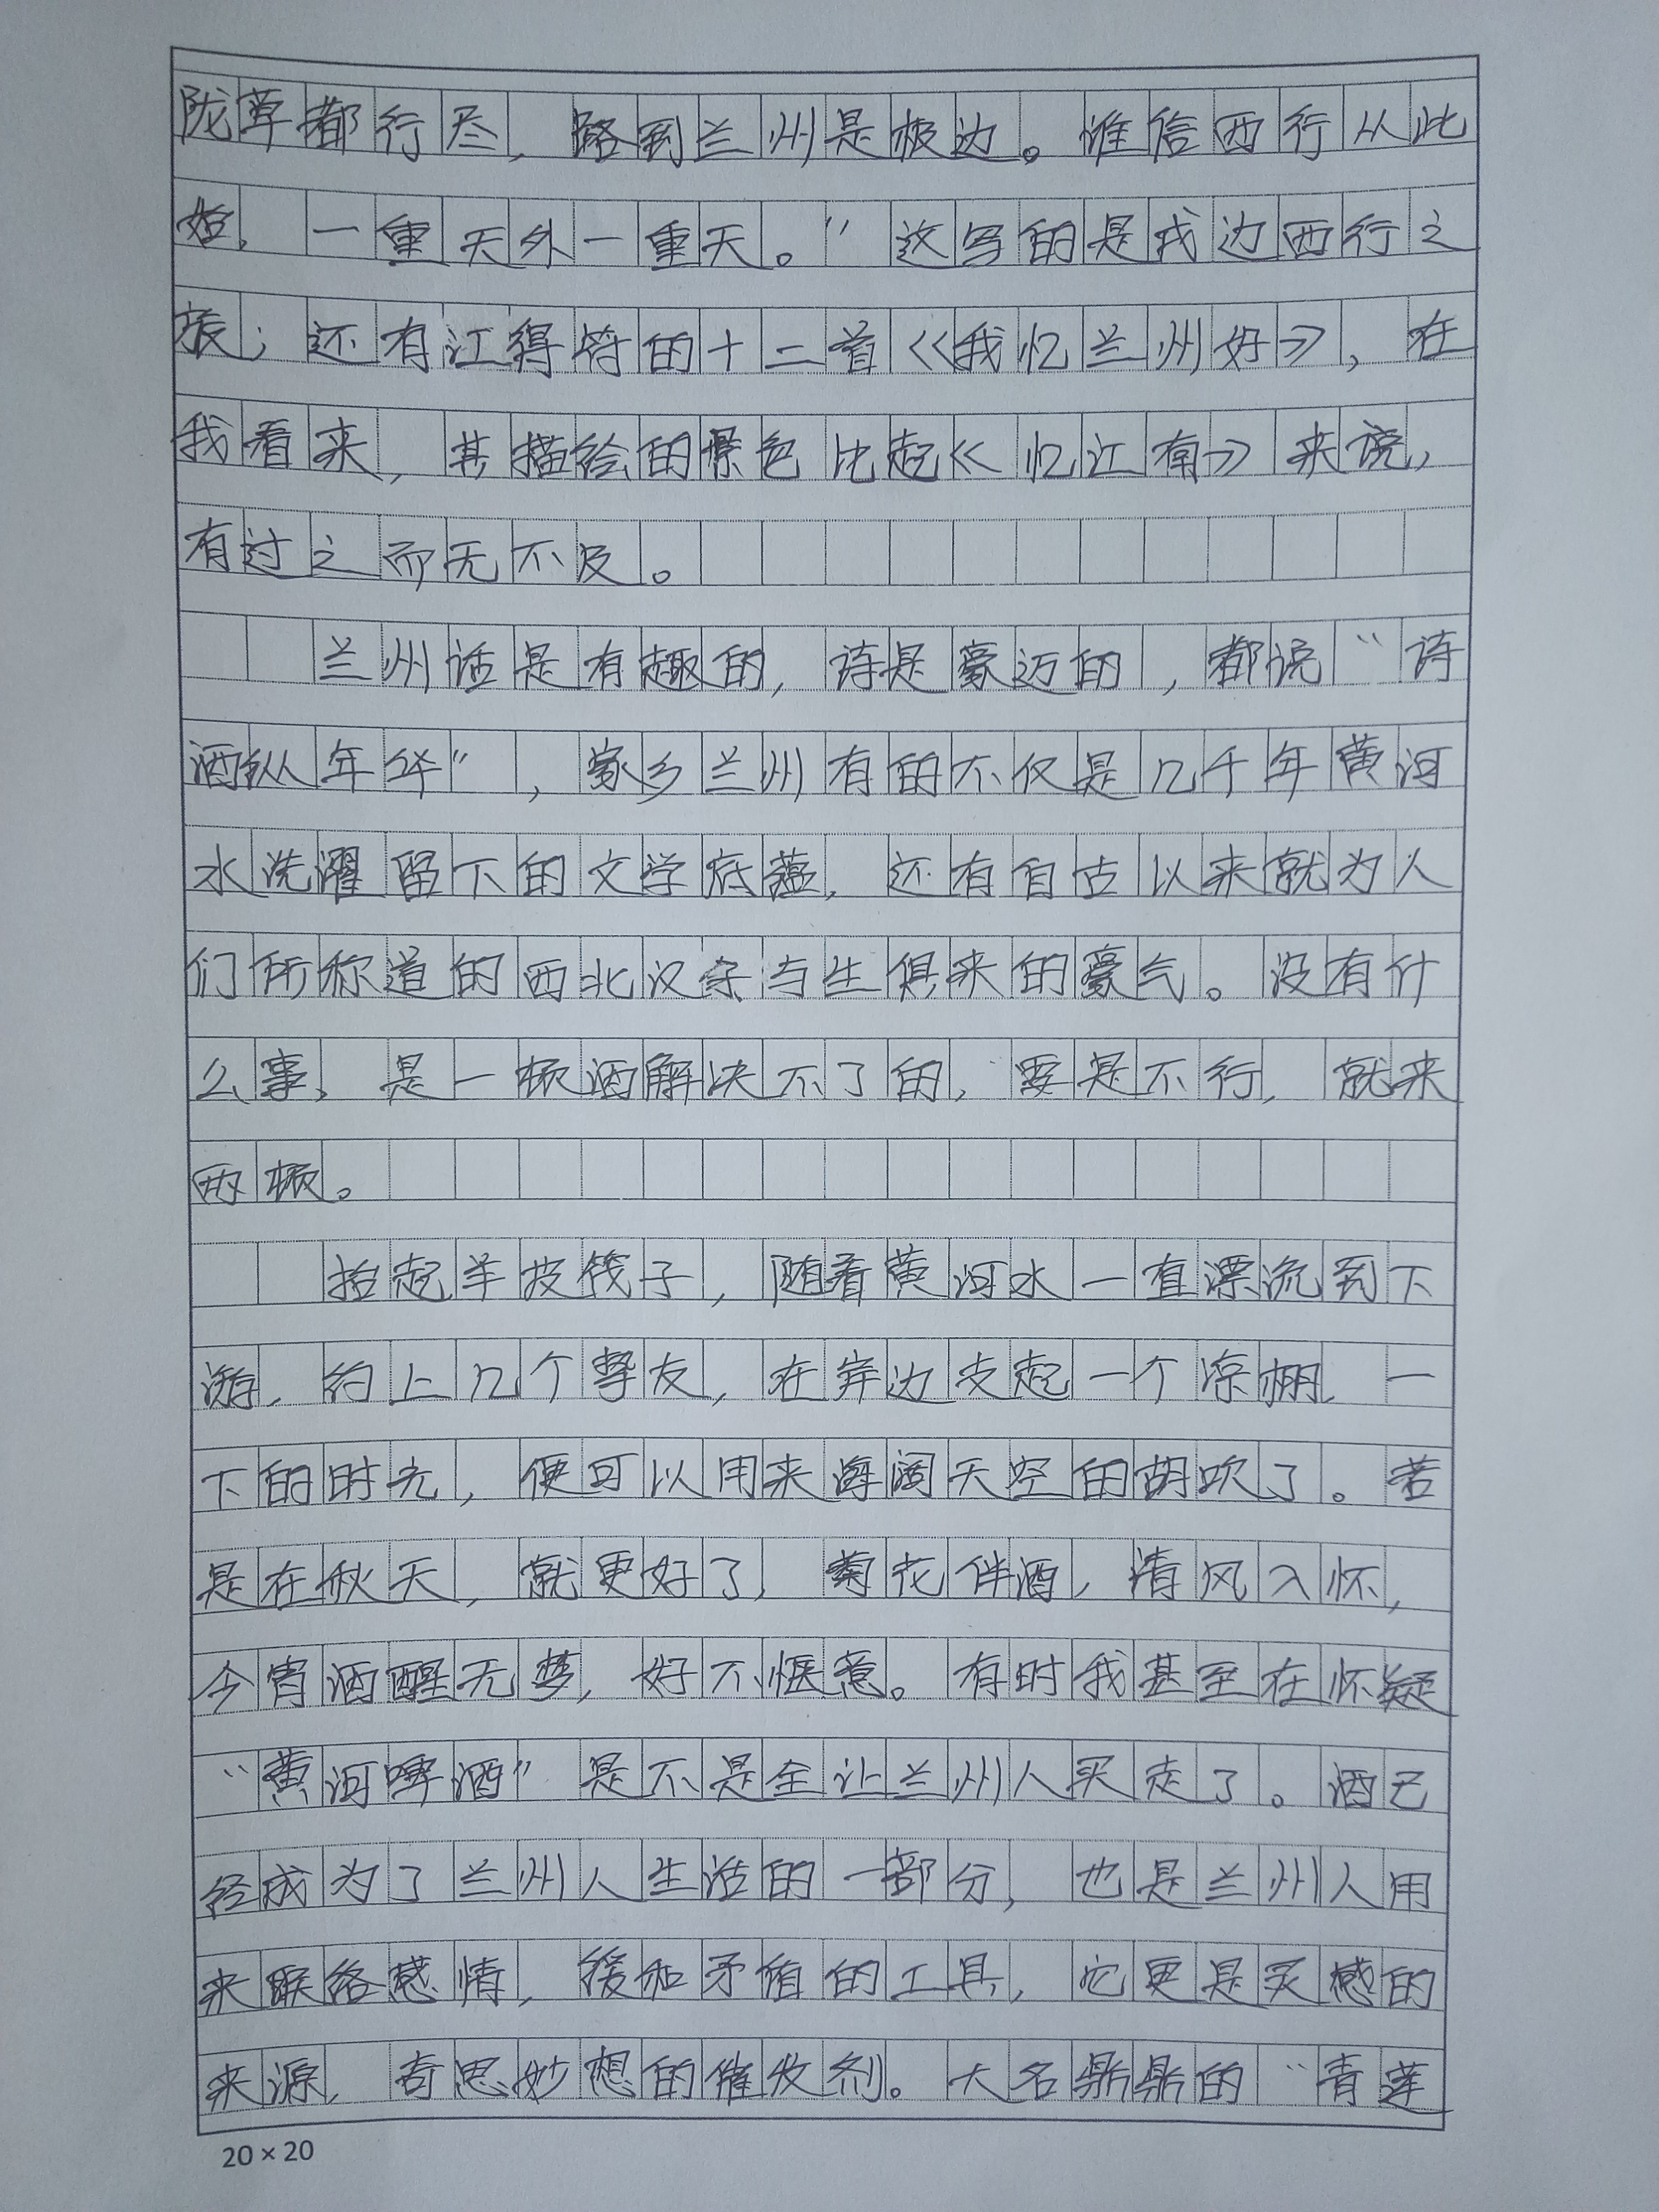 陇草都行尽，路到兰州是极边。谁信西行从此
始，一重天外一重天。”这写的是戎边西行之
旅；还有江得符的十二首《我忆兰州好》，在
我看来，其描绘的景色比起《忆江南》来说，
有过之而无不及。
兰州话是有趣的，诗是豪迈的，都说“诗
酒纵年华”，家乡兰州有的不仅是几千年黄河
水洗濯留下的文学底蕴，还有自古以来就为人
们所称道的西北汉子与生俱来的豪气。没有什
么事，是一顿酒解决不了的，要是不行，就来
两顿。
抬起羊皮筏子，随着黄河水一直漂流到下
游，约上几个挚友，在岸边支起一个凉棚，一
下的时光，便可以用来海阔天空的胡吹了。若
是在秋天，就更好了，菊花伴酒，清风入怀，
今宵酒醒无梦，好不惬意。有时我甚至在怀疑
“黄河啤酒”是不是全让兰州人买走了。酒已
经成为了兰州人生活的一部分，也是兰州人用
来联络感情，缓和矛盾的工具，它更是灵感的
来源，奇思妙想的催收剂。大名鼎鼎的“青莲
20×20